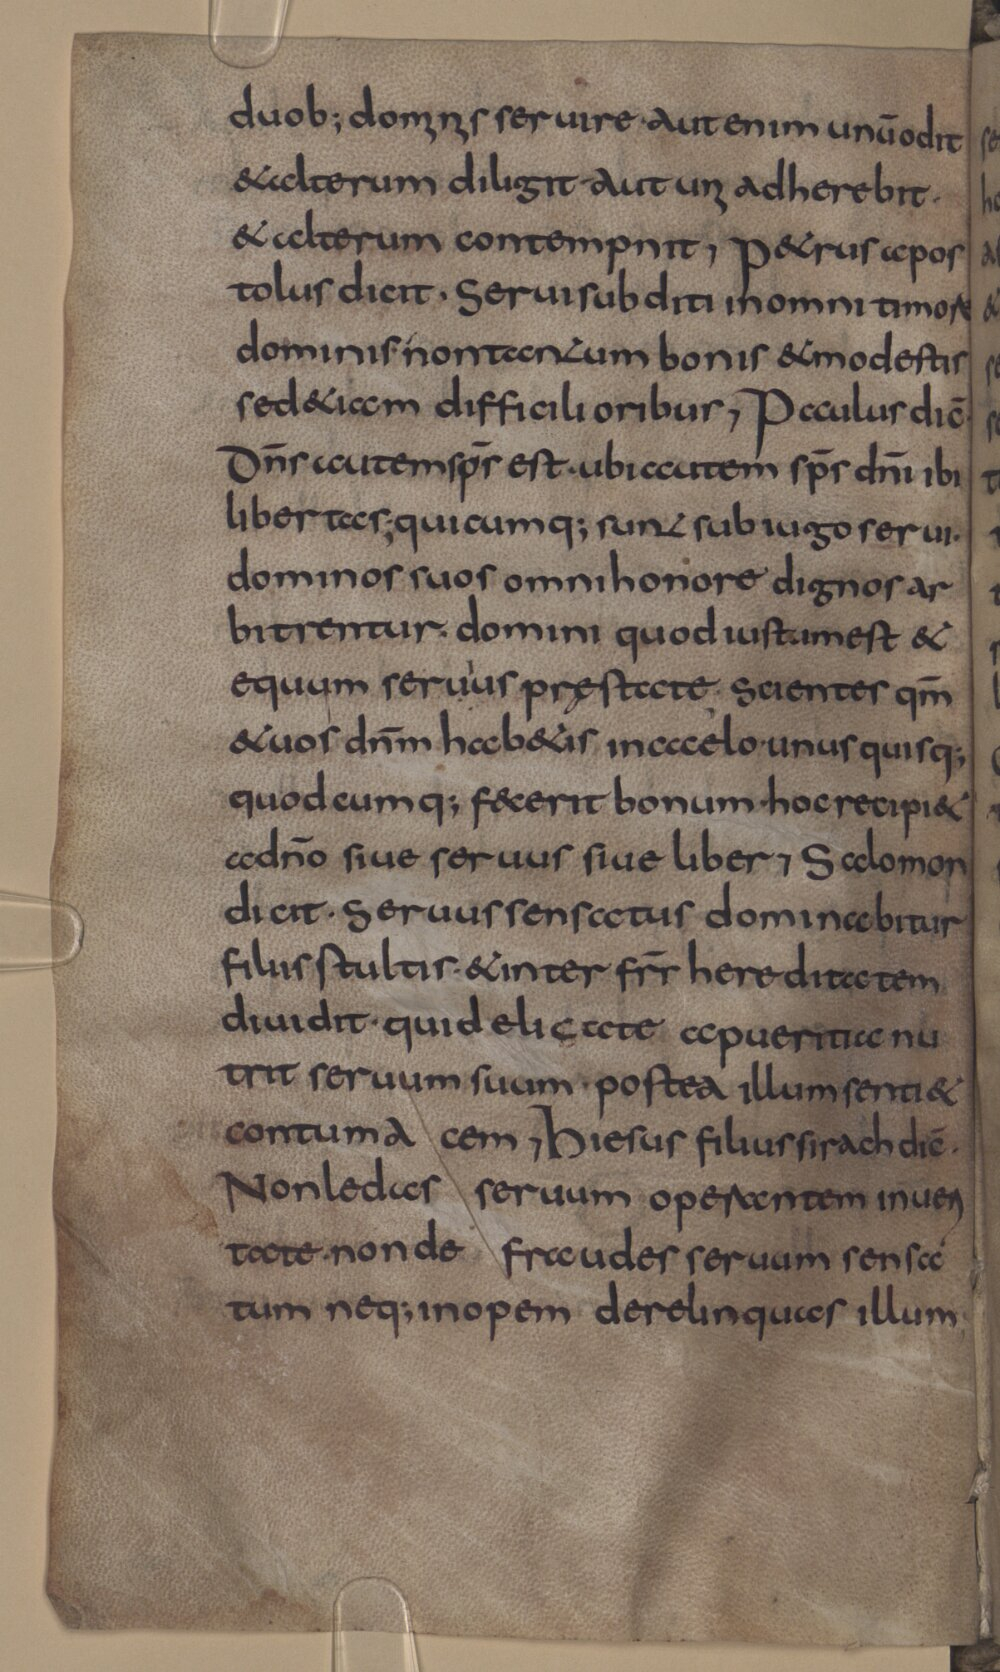 duob; dominis seruire· aut enim unū odit
& alterum diligit· Aut uni adherebit·
& alterum contempnit; P&rus apos
tolus dicit· Serui subditi in omni timore
dominis· non tantum bonis & modestis
sed & iam difficilioribus; Paulus dic̄·
Dn̄s autem sp̄s est· ubi autem sp̄s dn̄i ibi
libertas; quicumq; sunt sub iugo serui·
dominos suos omni honore dignos ar
bitrentur· domini quod iustum est &
equum seruus pręstate· Scientes qm̄
& uos dn̄m hab&is in caelo· unus quisq;
quodcumq; fecerit bonum· hoc recipi&
a dn̄o siue seruus siue liber; Salomon
dicit· Seruus sensatus dominabitur
filiis stultis· & inter fr̄r hereditatem
diuidit· qui delicate a pueritia nu
trit seruum suum· postea illum senti&
contumacem; Hiesus filius sirach dic̄·
Non ledas seruum operantem in ueri
tate· non de fraudes seruum sensa
tum neq; inopem derelinquas illum